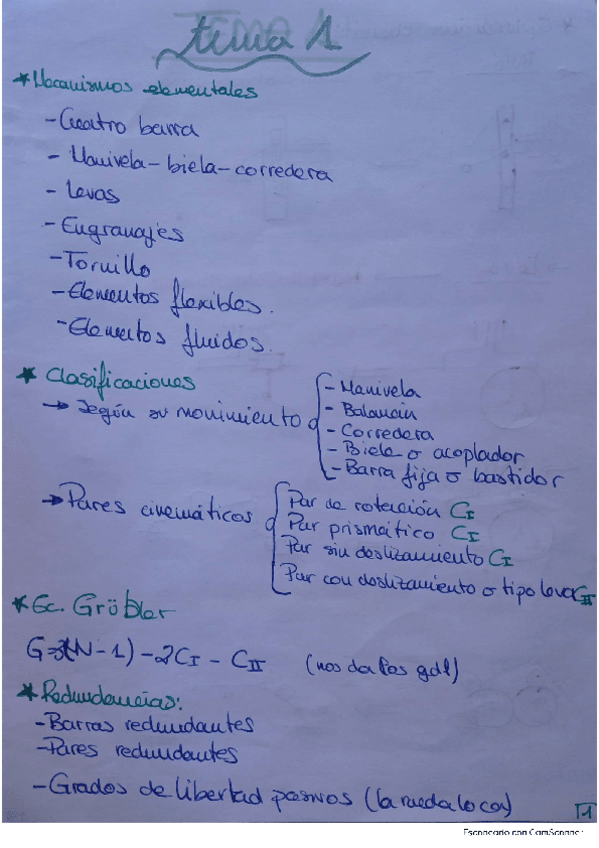 tema 1
* Mecanismos elementales
- Cuatro barra
- Manivela - biela - corredera
- Levas
- Engranajes
- Tornillo
- Elementos flexibles.
- Elementos fluidos.
* Clasificaciones
→ Según su movimiento
- Manivela
- Balancin
- Corredera
- Biela o acoplador
- Barra fija o bastidor
→ Pares cinemáticos
Par de rotación CI
Par prismático CI
Par sin deslizamiento CI
Par con deslizamiento o tipo leva CII
* Ec. Grübler
G=3(N-1)-2CI - CII (nos da los gdl)
* Redundancias:
- Barras redundantes
- Pares redundantes
- Grados de libertad pasivos (la rueda loca)
1
Escaneado con CamScanner